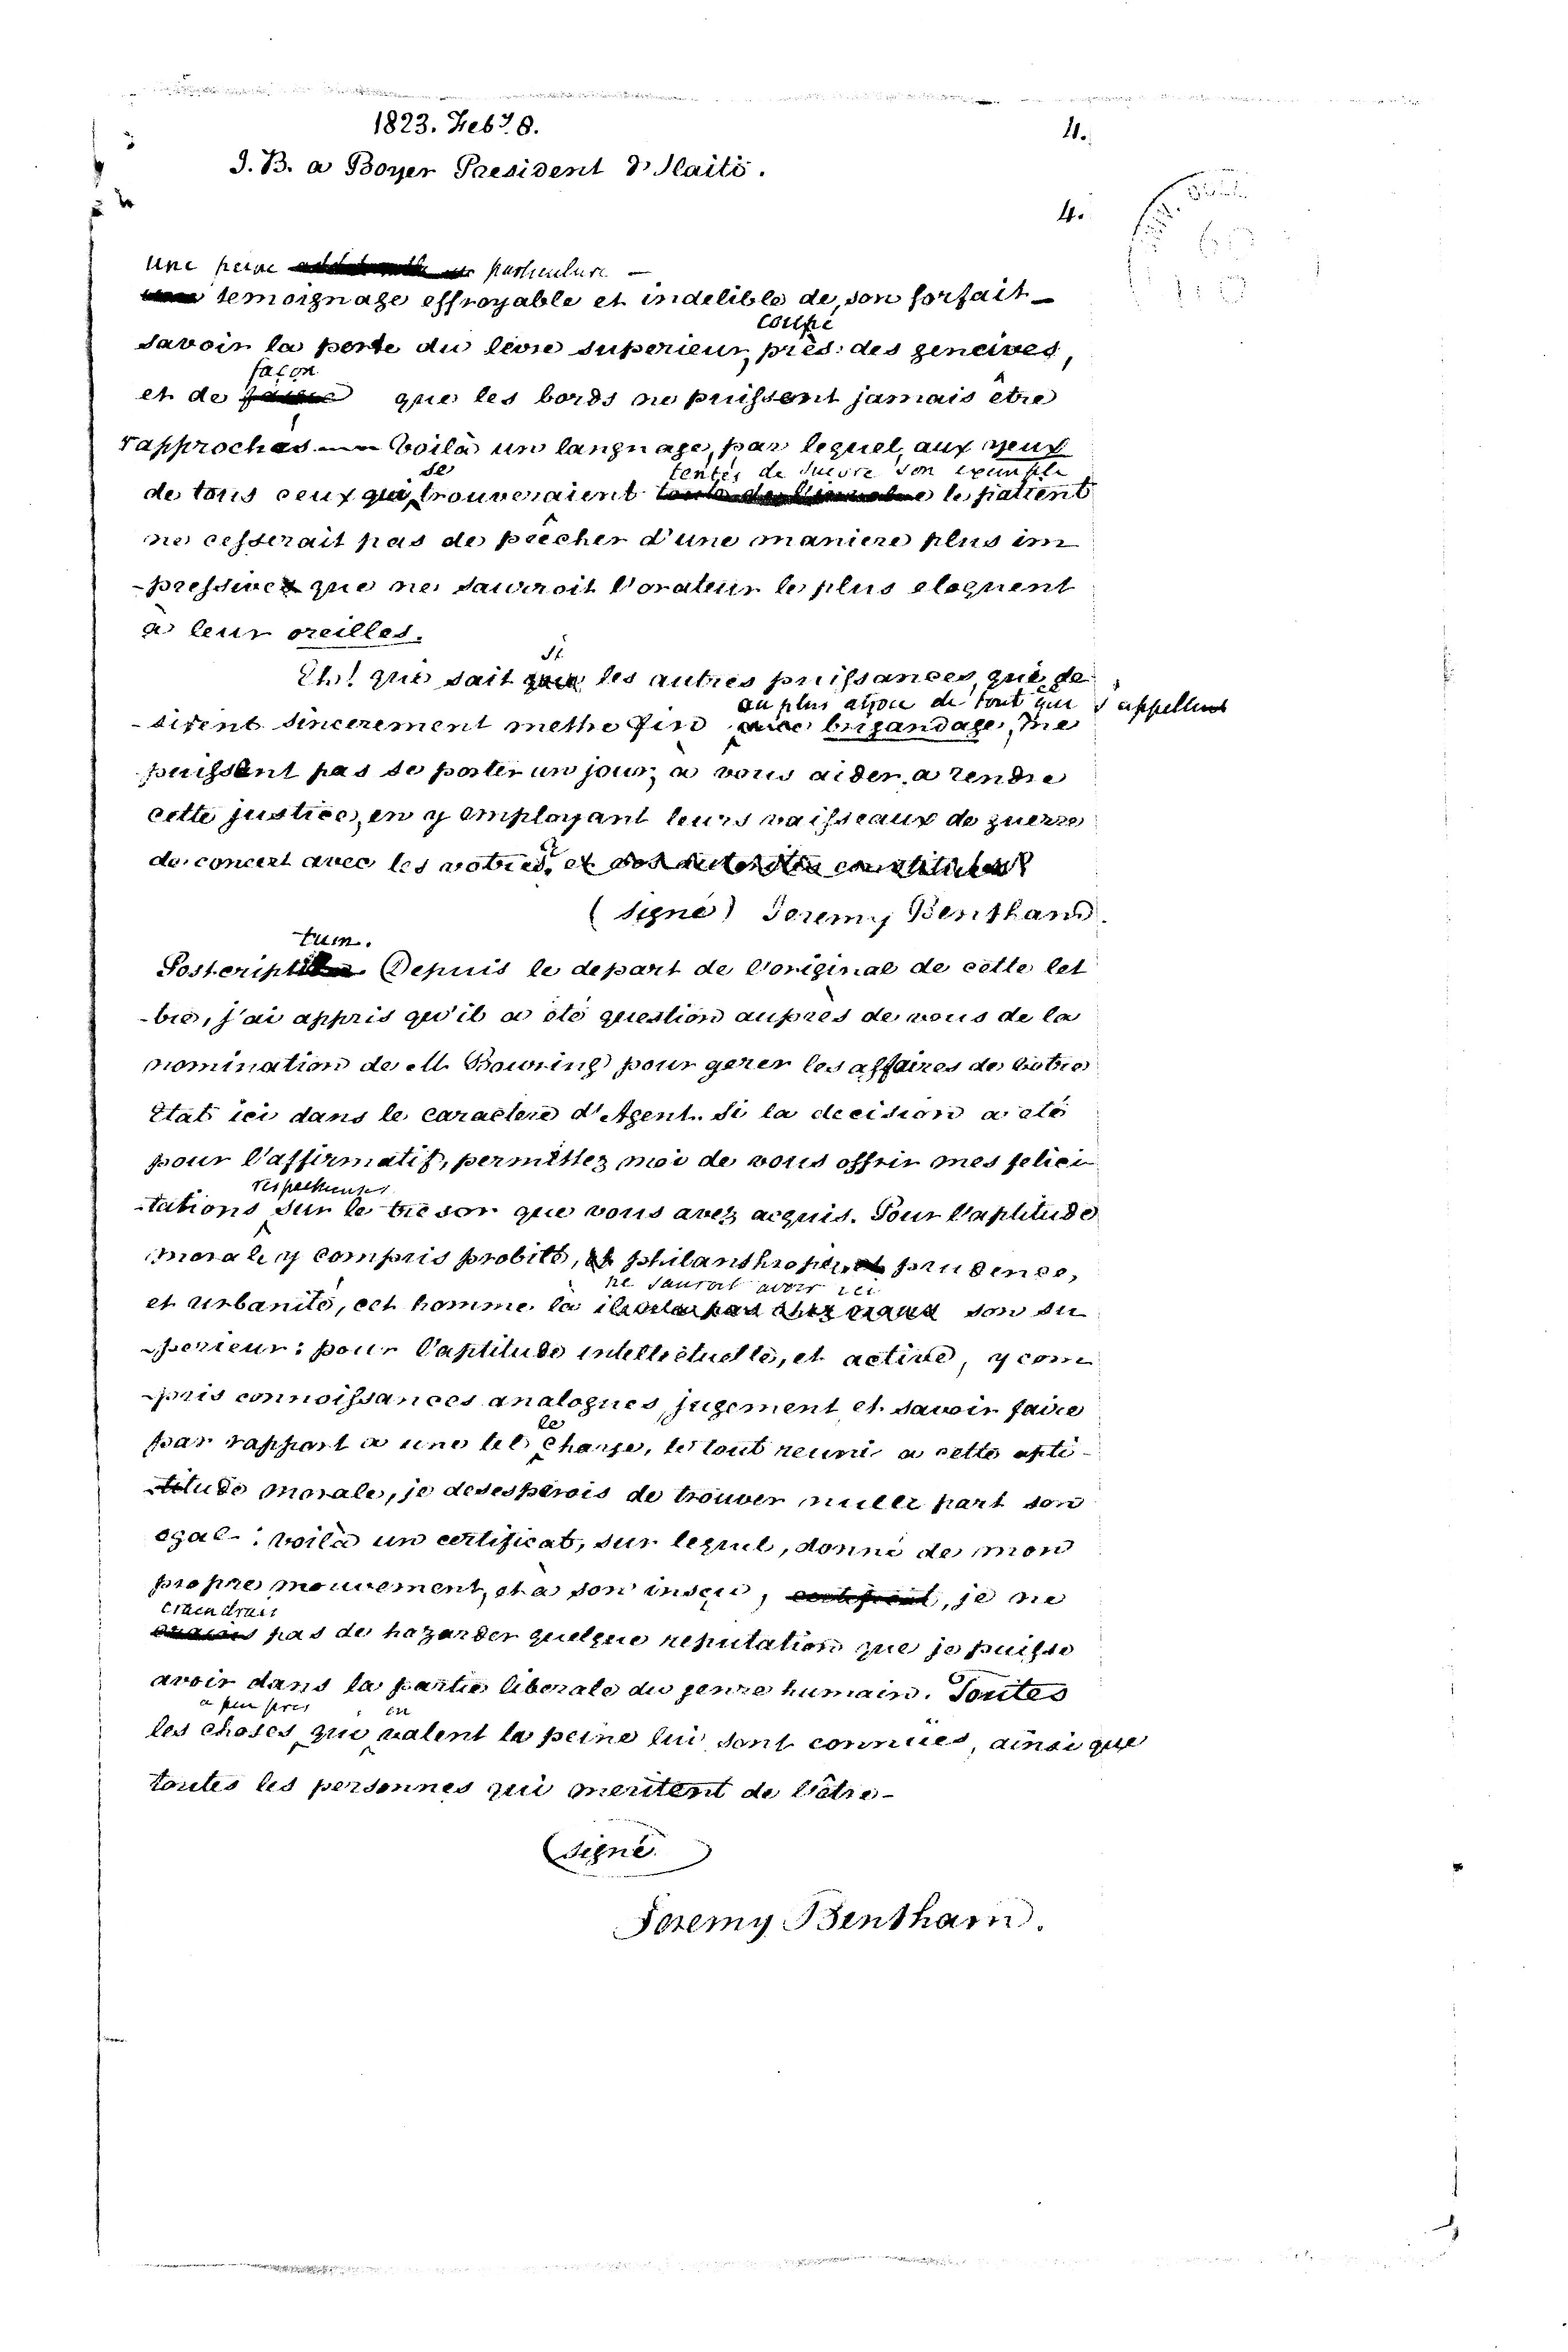 1823. Feb.y 8.
4.
J. B. a Boyer President d'Haiti.
4.
une peine particuliere —
temoignage effroyable et indelible de son forfait —
coupé
savoir la perte du levre superieur, près des gencives,
façon
et de que les bords ne puissent jamais être
rapprochés — Voilà un langnage, par lequel, aux yeux
se tentés de suivre son exemple
de tous ceux qui trouveraient le patient
ne cesserait pas de prêcher d'une maniere plus im
-pressive que ne sauroit l'orateur le plus eloquent
à leur oreilles.
si
Eh! qui sait que les autres puissances, qui de
au plus atroce de tout ce qui s'appellent
-sirent sincerement methe fin brigandage, ne
puissent pas se porter un jour, à vous aider a rendre
cette justice, en y employant leurs vaisseaux de guerre
de concert avec les votres? et vos autorités constituées?
(signé) Jeremy Bentham.
tum.
Postcript Depuis le depart de l'original de cette let
-tre, j'ai appris qu'il a été question auprès de vous de la
nomination de M. Bowring pour gerer les affaires de votre
Etat ici dans le caractere d'Agent. Si la decision a été
pour l'affirmatif, permettez moi de vous offrir mes felici
respectueuses
-tations sur le tresor que vous avez acquis. Pour l'aptitude
morale, y compris probité, et philanthropie, et prudence,
ne sauroit avoir ici
et urbanité, cet homme là il son su
-perieur: pour l'aptitude intellectuelle, et active, y com
-pris connoissances analogues, jugement et savoir faire
le
par rapport a une tel charge, le tout reuni a cette apti-
-titude morale, je desesperois de trouver nulle part son
egal: voilà un certificat, sur lequel, donné de mon
propre mouvement, et à son insçu, certificat, je ne
craindrais
pas de hazarder quelque reputation que je puisse
avoir dans la partie liberale du genre humain. Toutes
a peu pres en
les choses qui valent la peine lui sont connües, ainsi que
toutes les personnes qui meritent de l'être-
(signé)
Jeremy Bentham.